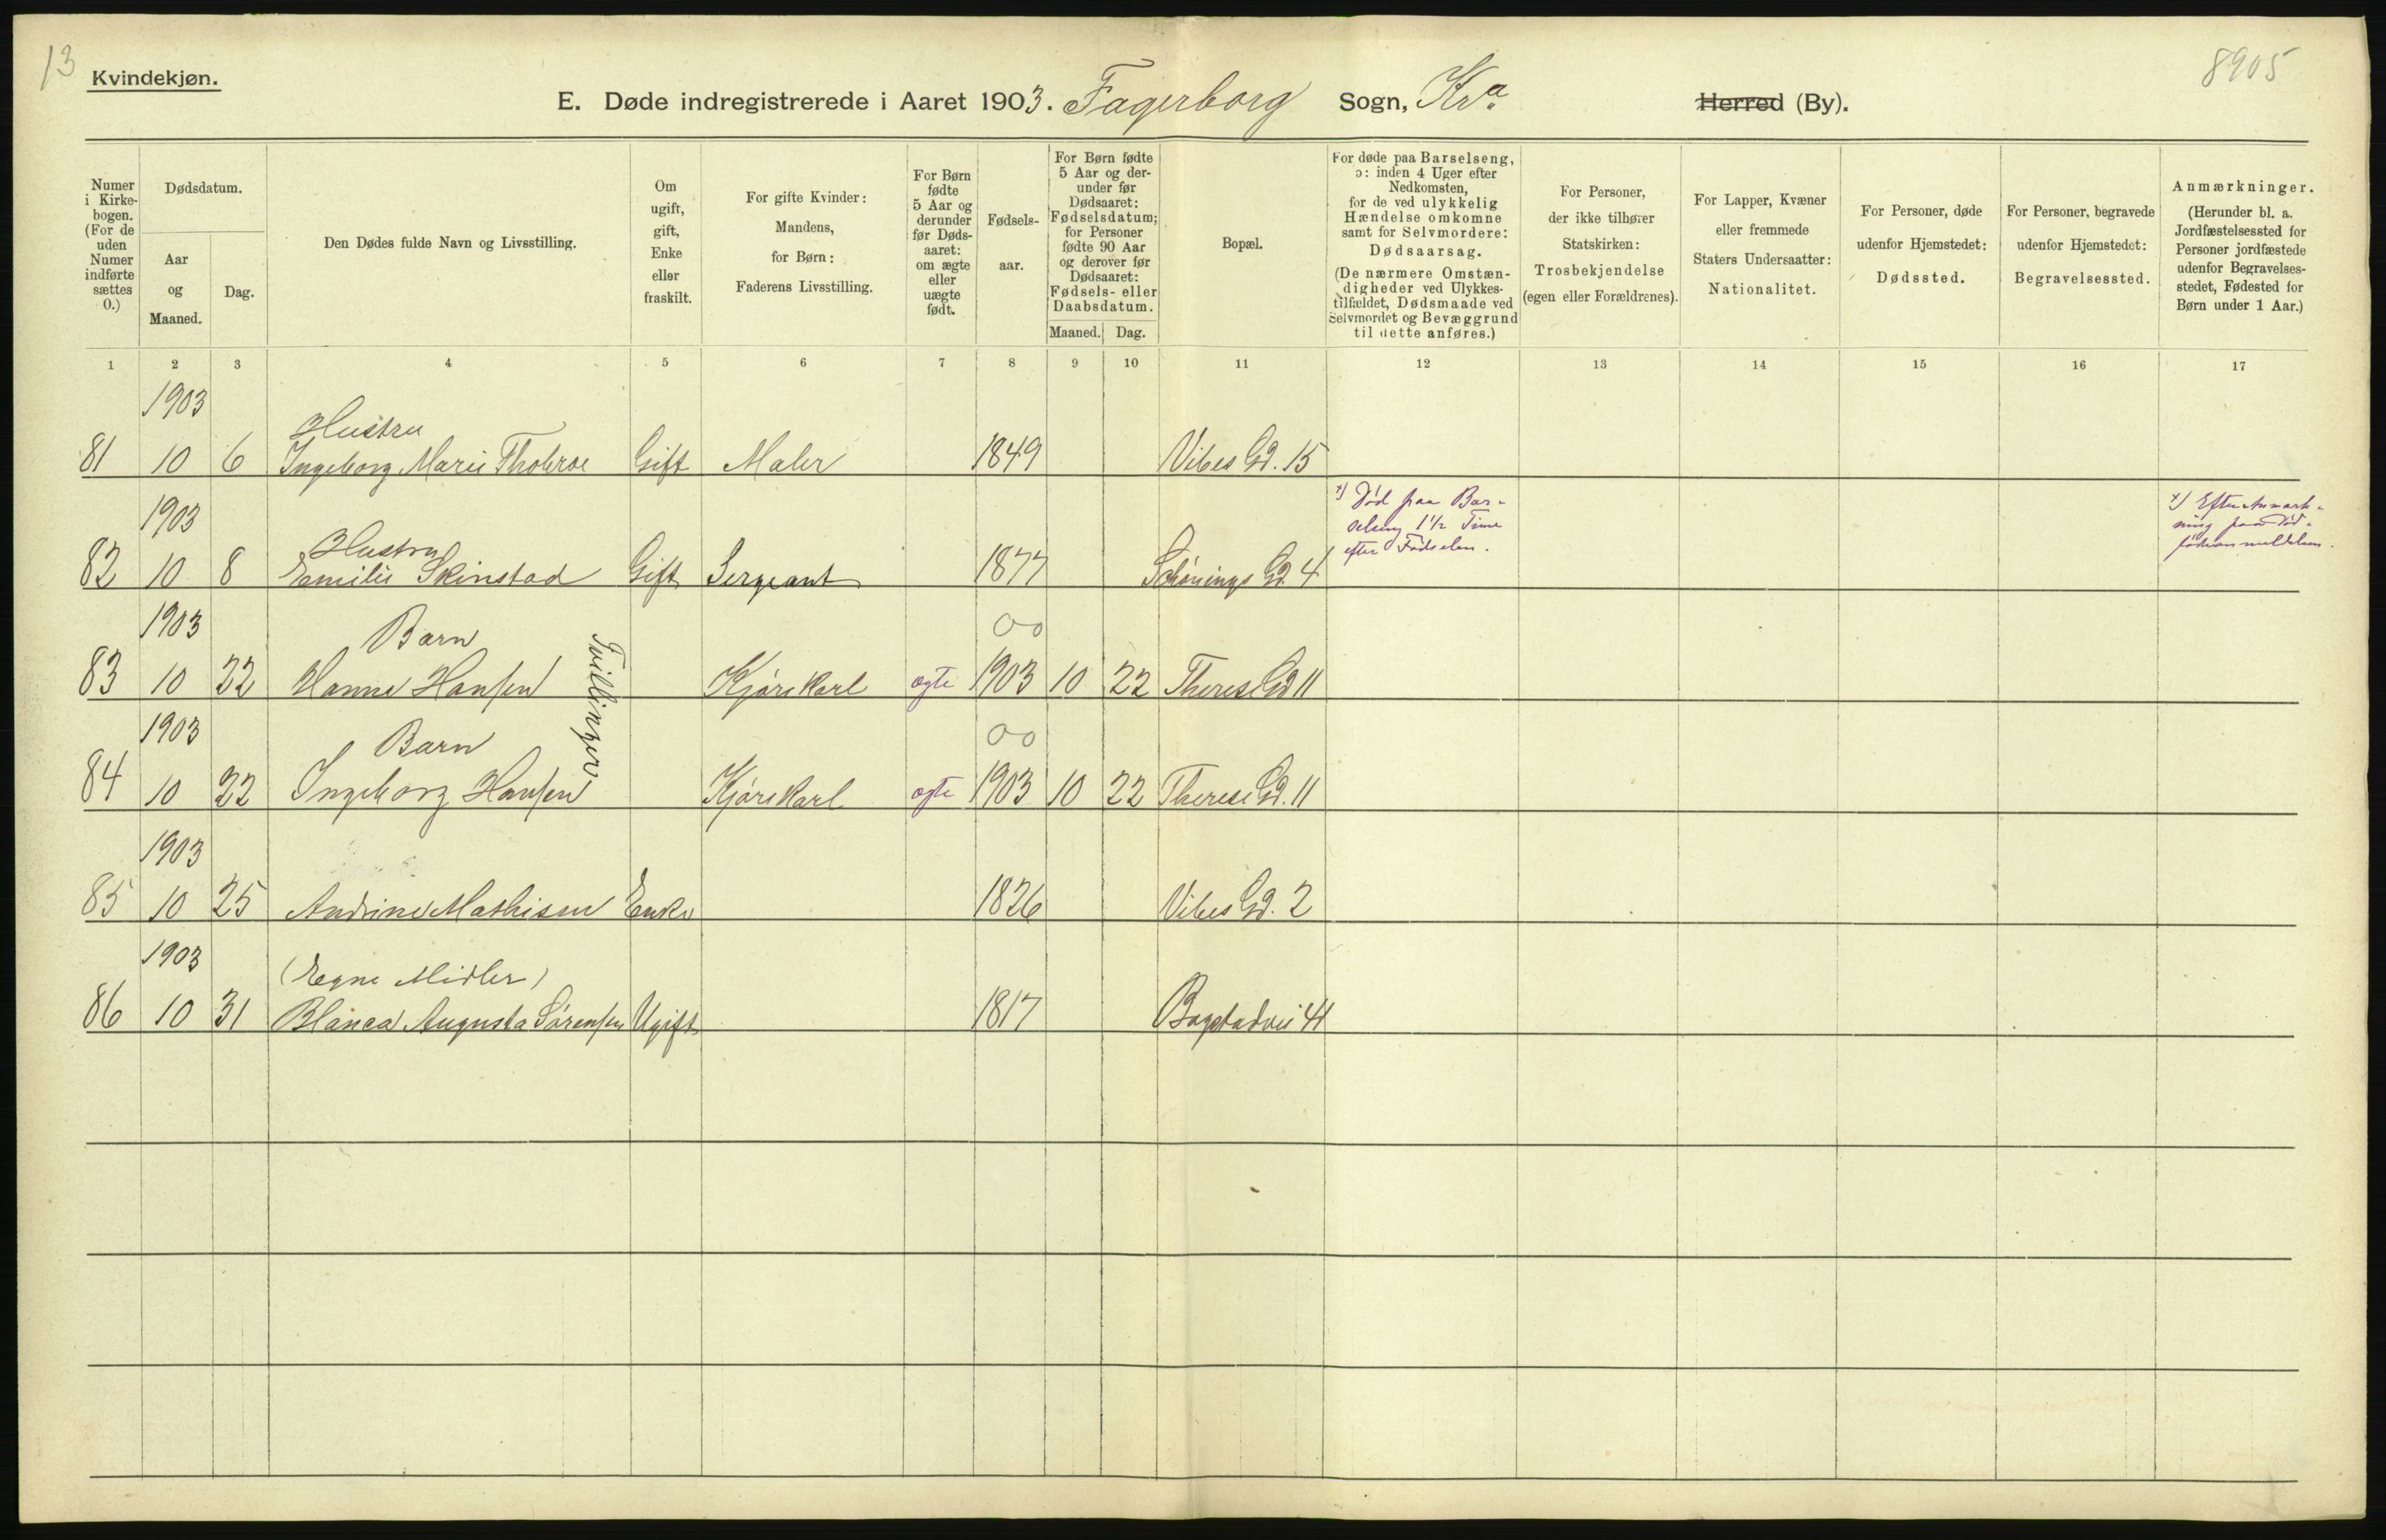 13
8905
Kvindekjøn.
E. Døde indregistrerede i Aaret 1903. Fagerborg Sogn, Kra. Herred (By).
Numer i Kirkebogen. (For de uden Numer indførte sættes 0.)
Dødsdatum.
Aar og Maaned.
Dag.
Den Dødes fulde Navn og Livsstilling.
Om ugift, gift, Enke eller fraskilt.
For gifte Kvinder: Mandens, for Børn: Faderens Livsstilling.
For Børn fødte 5 Aar og derunder før Dødsaaret: om ægte eller uægte født.
Fødselsaar.
For Børn fødte 5 Aar og derunder før Dødsaaret: Fødselsdatum; for Personer fødte 90 Aar og derover før Dødsaaret: Fødsels- eller Daabsdatum.
Maaned. Dag.
Bopæl.
For døde paa Barselseng, ɔ: inden 4 Uger efter Nedkomsten, for de ved ulykkelig Hændelse omkomne samt for Selvmordere: Dødsaarsag. (De nærmere Omstændigheder ved Ulykkestilfældet, Dødsmaade ved Selvmordet og Bevæggrund til dette anføres.)
For Personer, der ikke tilhører Statskirken: Trosbekjendelse (egen eller Forældrenes).
For Lapper, Kvæner eller fremmede Staters Undersaatter: Nationalitet.
For Personer, døde udenfor Hjemstedet: Dødssted.
For Personer, begravede udenfor Hjemstedet: Begravelsessted.
Anmærkninger. (Herunder bl. a. Jordfæstelsessted for Personer jordfæstede udenfor Begravelsesstedet, Fødested for Børn under 1 Aar.)
1 2 3 4 5 6 7 8 9 10 11 12 13 14 15 16 17
1903
Hustru
81 10 6 Ingeborg Marie Gift Maler 1849 Vibes Gd. 15
1903
Hustru
82 10 8 Emilie Skinstad Gift Sergeant 1877 Schønings Gd. 4
*) Død paa Bar-
selseng 1 1/2 Time
efter Fødselen.
*) Efter Anmærk-
ning paa Død-
1903
Barn
00
83 10 22 Hanna Hansen Kjørekarl ægte 1903 10 22 Therese Gd 11
Tvillinger
1903
Barn
00
84 10 22 Ingeborg Hansen Kjørekarl ægte 1903 10 22 Therese Gd. 11
1903
85 10 25 Andrine Mathisen Enke 1826 Vibes Gd. 2
1903
(Egne Midler)
86 10 31 Blanca Augusta Sørensen Ugift 1817 Bogstadvei 41